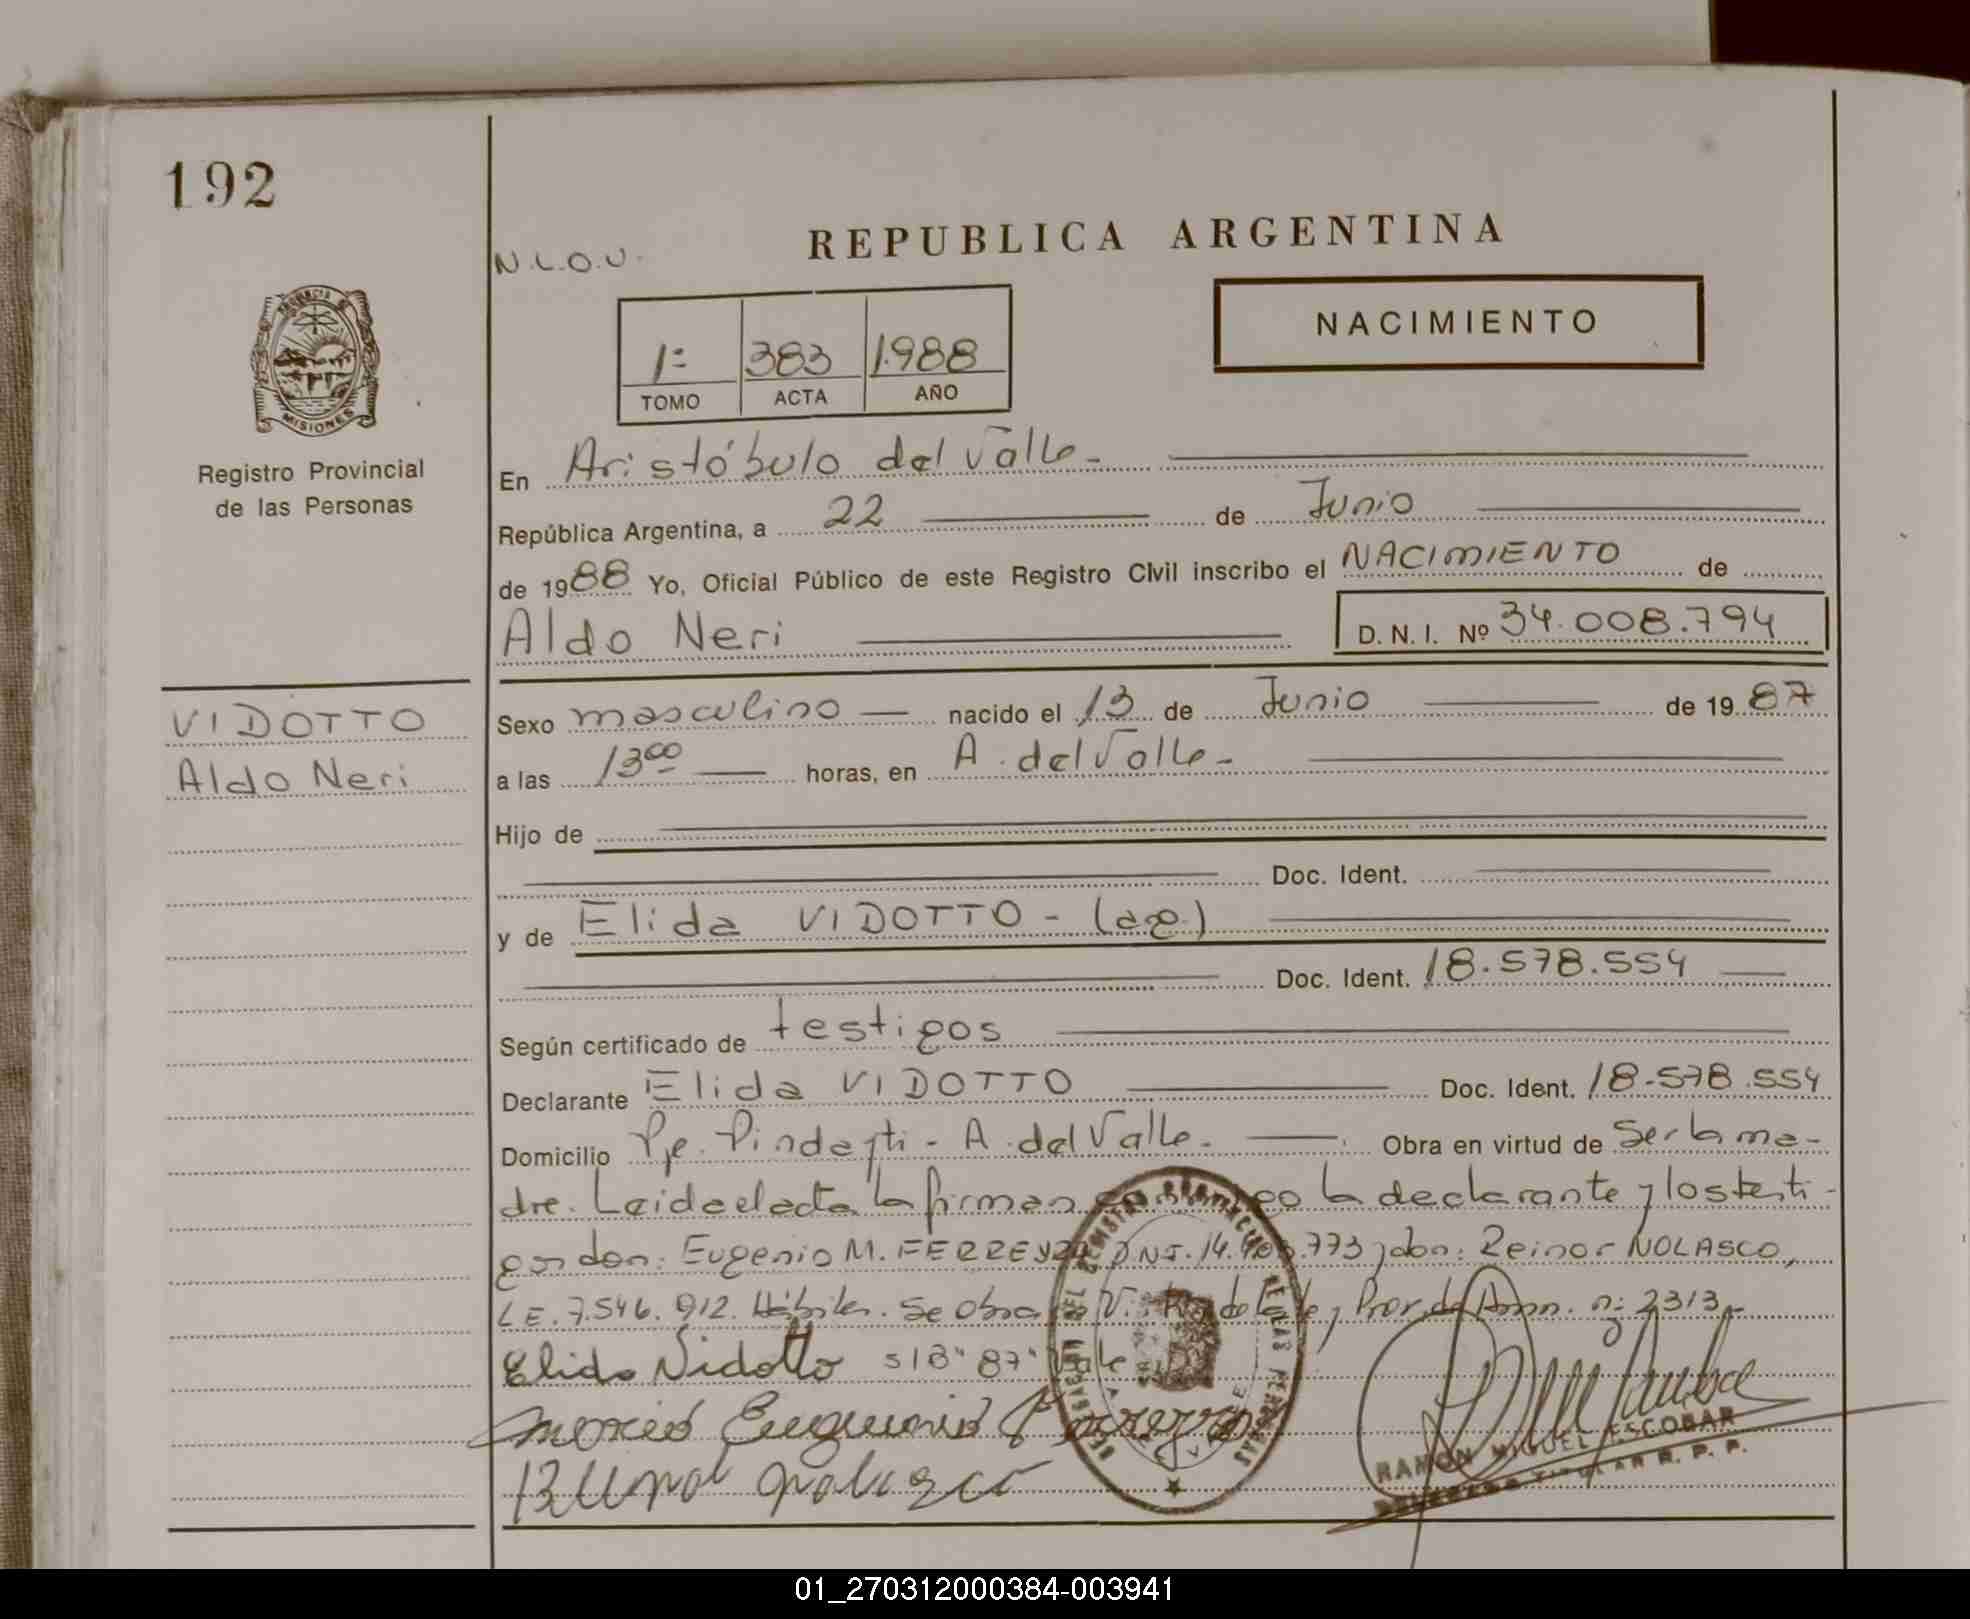 192
REPUBLICA ARGENTINA
N.L.O.U.
NACIMIENTO
1= 383 1.988
TOMO ACTA AÑO
PROVINCIA DE
MISIONES
Registro Provincial
de las Personas
En Aristóbulo del Valle-
República Argentina, a 22 de Junio
de 1988 Yo, Oficial Público de este Registro Civil inscribo el NACIMIENTO de
Aldo Neri D. N. I. Nº 34.008.794
VIDOTTO
Aldo Neri
Sexo masculino nacido el 13 de Junio de 1987
a las 13 00 horas, en A. del Valle-
Hijo de
Doc. Ident.
y de Elida VIDOTTO - (arg.)
Doc. Ident. 18.578.554
Según certificado de testigos
Declarante Elida VIDOTTO Doc. Ident. 18-578.554
Domicilio Pje. Pindayti - A. del Valle. Obra en virtud de Ser la ma-
dre. Leida el acta la firman la declarante y los testi-
gos don: Eugenio M. FERREYRA DNI. 14. .773 y don: Reinor NOLASCO,
LE. 7.546.912. Hábiles. Se obra n: 2313-
Elida Vidotto S/B "87" Vale
Ferreyra
RAMON MIGUEL ESCOBAR
DELEGADO TITULAR R. P. P.
DELEGACION DEL REGISTRO PROVINCIAL DE LAS PERSONAS
01_270312000384-003941